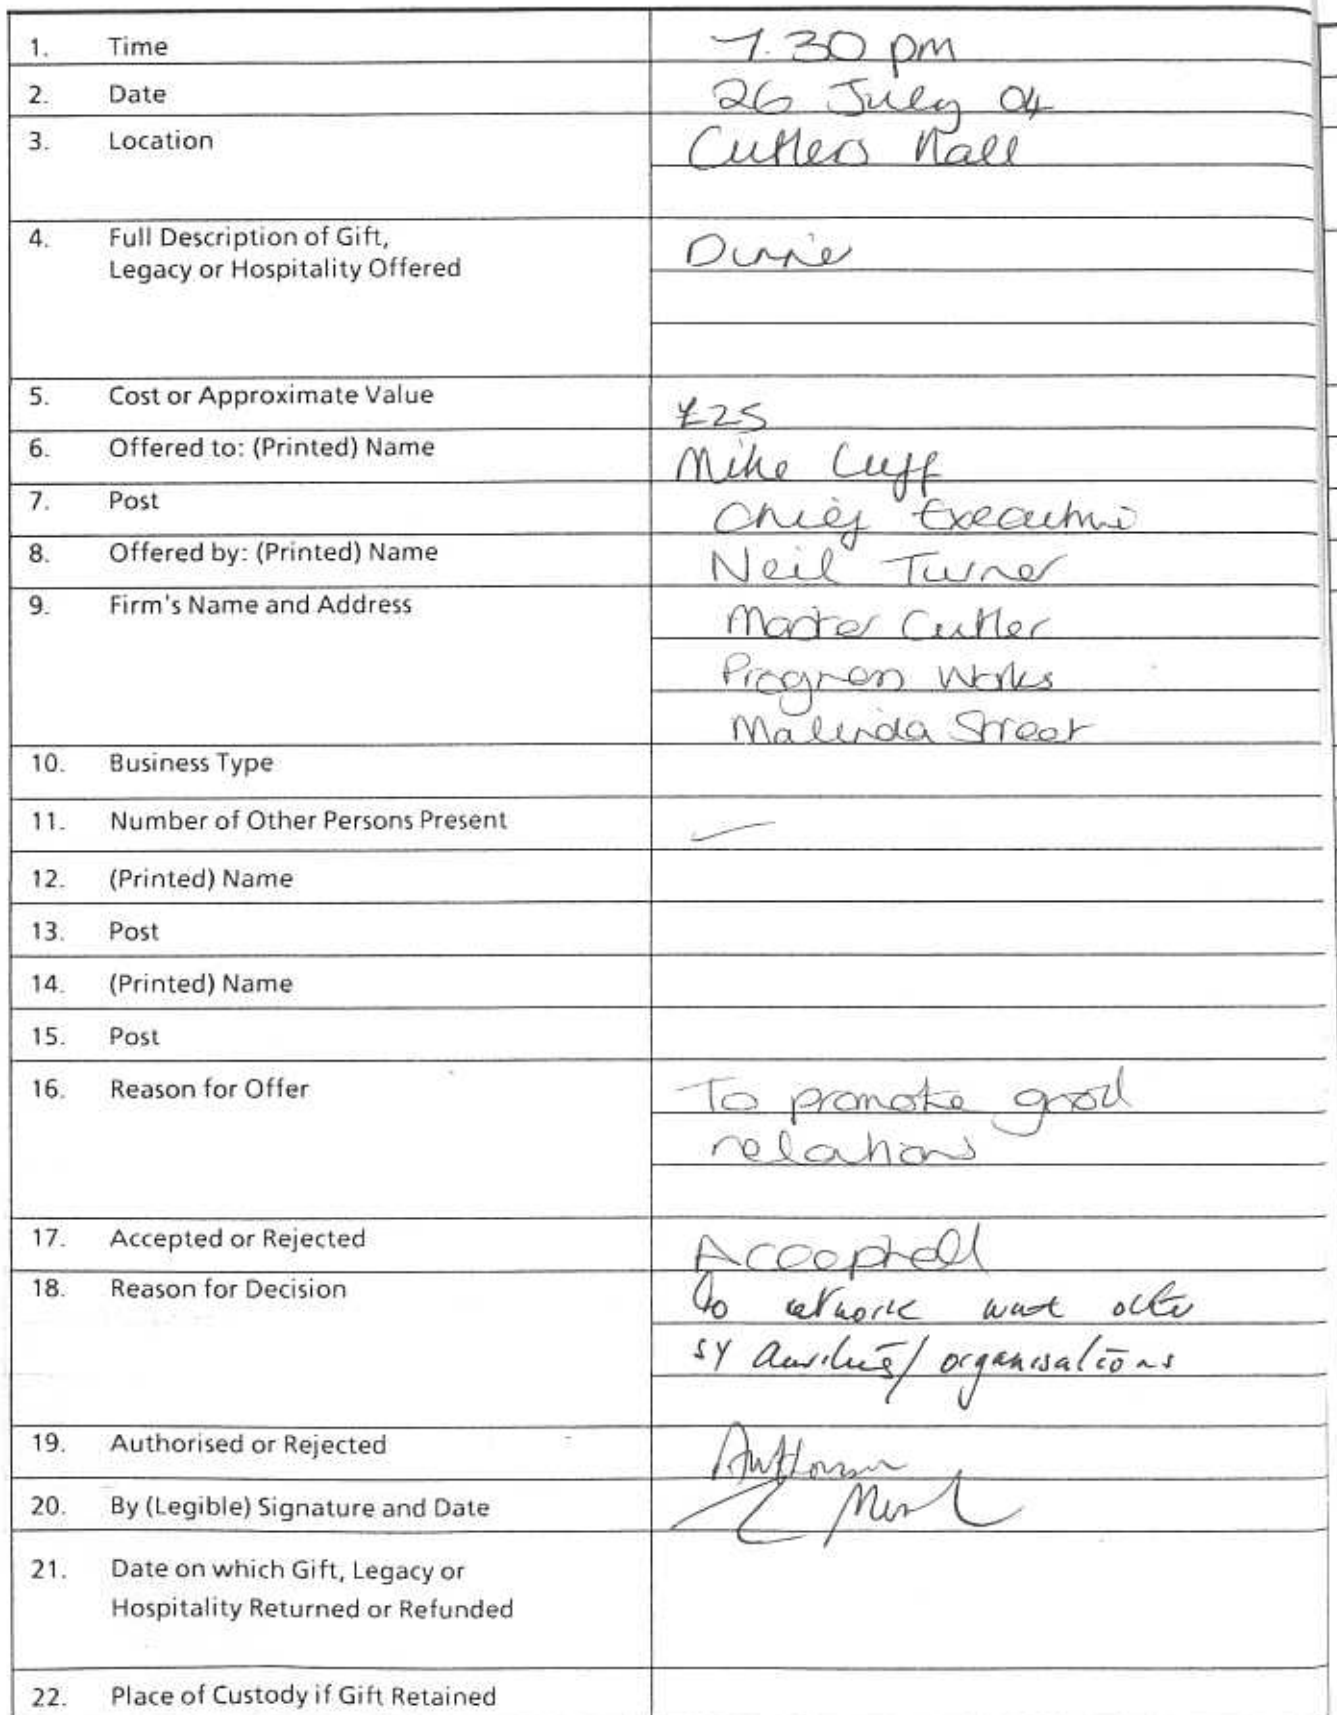 1. Time 7.30 pm
2. Date 26 July 04
3. Location Cutlers Hall
4. Full Description of Gift, Dinner
Legacy or Hospitality Offered
5. Cost or Approximate Value £25
6. Offered to: (Printed) Name Mike Cuff
7. Post Chief Executive
8. Offered by: (Printed) Name Neil Turner
9. Firm's Name and Address Master Cutler
Progress Works
Malinda Street
10. Business Type
11. Number of Other Persons Present
12. (Printed) Name
13. Post
14. (Printed) Name
15. Post
16. Reason for Offer To promote good
relations
17. Accepted or Rejected Accepted
18. Reason for Decision To network other
SY / organisations
19. Authorised or Rejected
20. By (Legible) Signature and Date
21. Date on which Gift, Legacy or
Hospitality Returned or Refunded
22. Place of Custody if Gift Retained